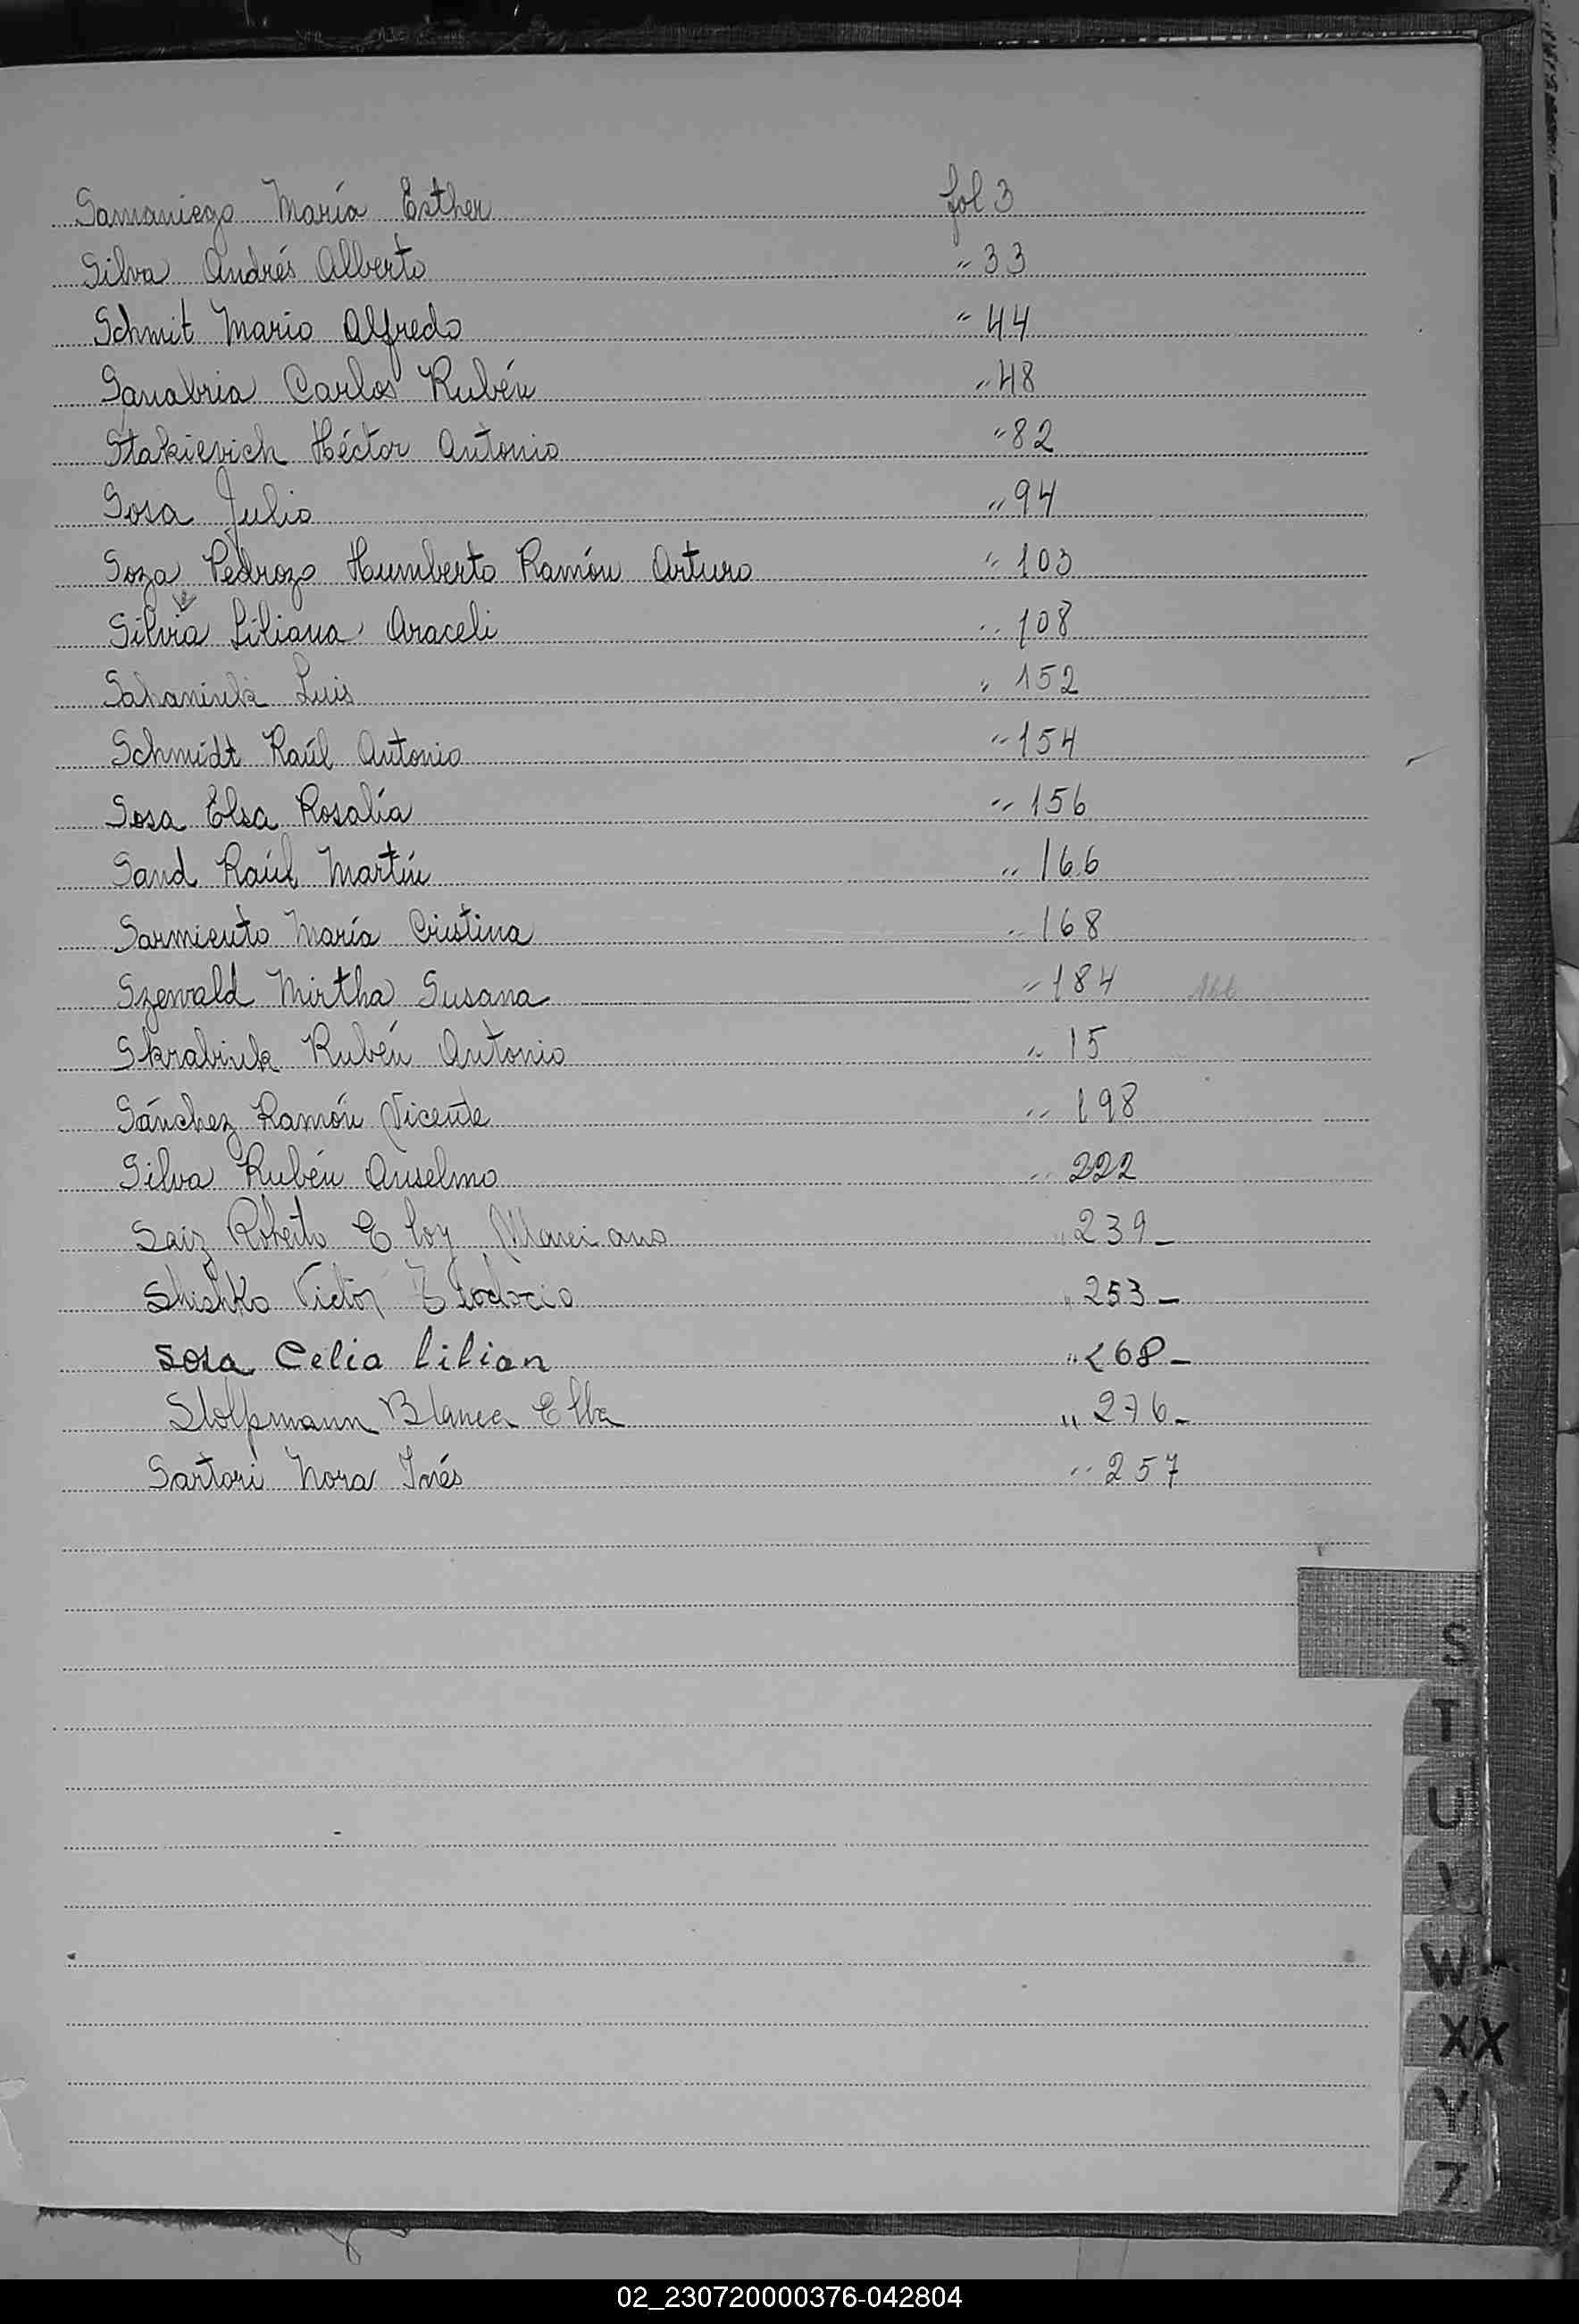 Samaniego María Esther fol 3
Silva Andrés Alberto " 33
Schmit Mario Alfredo " 44
Sanabria Carlos Rubén " 48
Stakievich Héctor Antonio " 82
Sosa Julio " 94
Soza Pedrozo Humberto Ramón Arturo " 103
Silvia Liliana Araceli " 108
Sahaniuk Luis " 152
Schmidt Raúl Antonio " 154
Sosa Elsa Rosalía " 156
Sand Raúl Martín " 166
Sarmiento María Cristina " 168
Szewald Mirtha Susana " 184
Skrabiuk Rubén Antonio " 15
Sánchez Ramón Vicente " 198
Silva Rubén Anselmo " 222
Saiz Roberto Eloy Marciano " 239 -
Shishko Victor " 253 -
Sosa Celia Lilian " 268 -
Stolpmann Blanca Elba " 276 -
Sartori Nora Inés " 257
S
T
U
W
XX
Y
Z
02_230720000376-042804